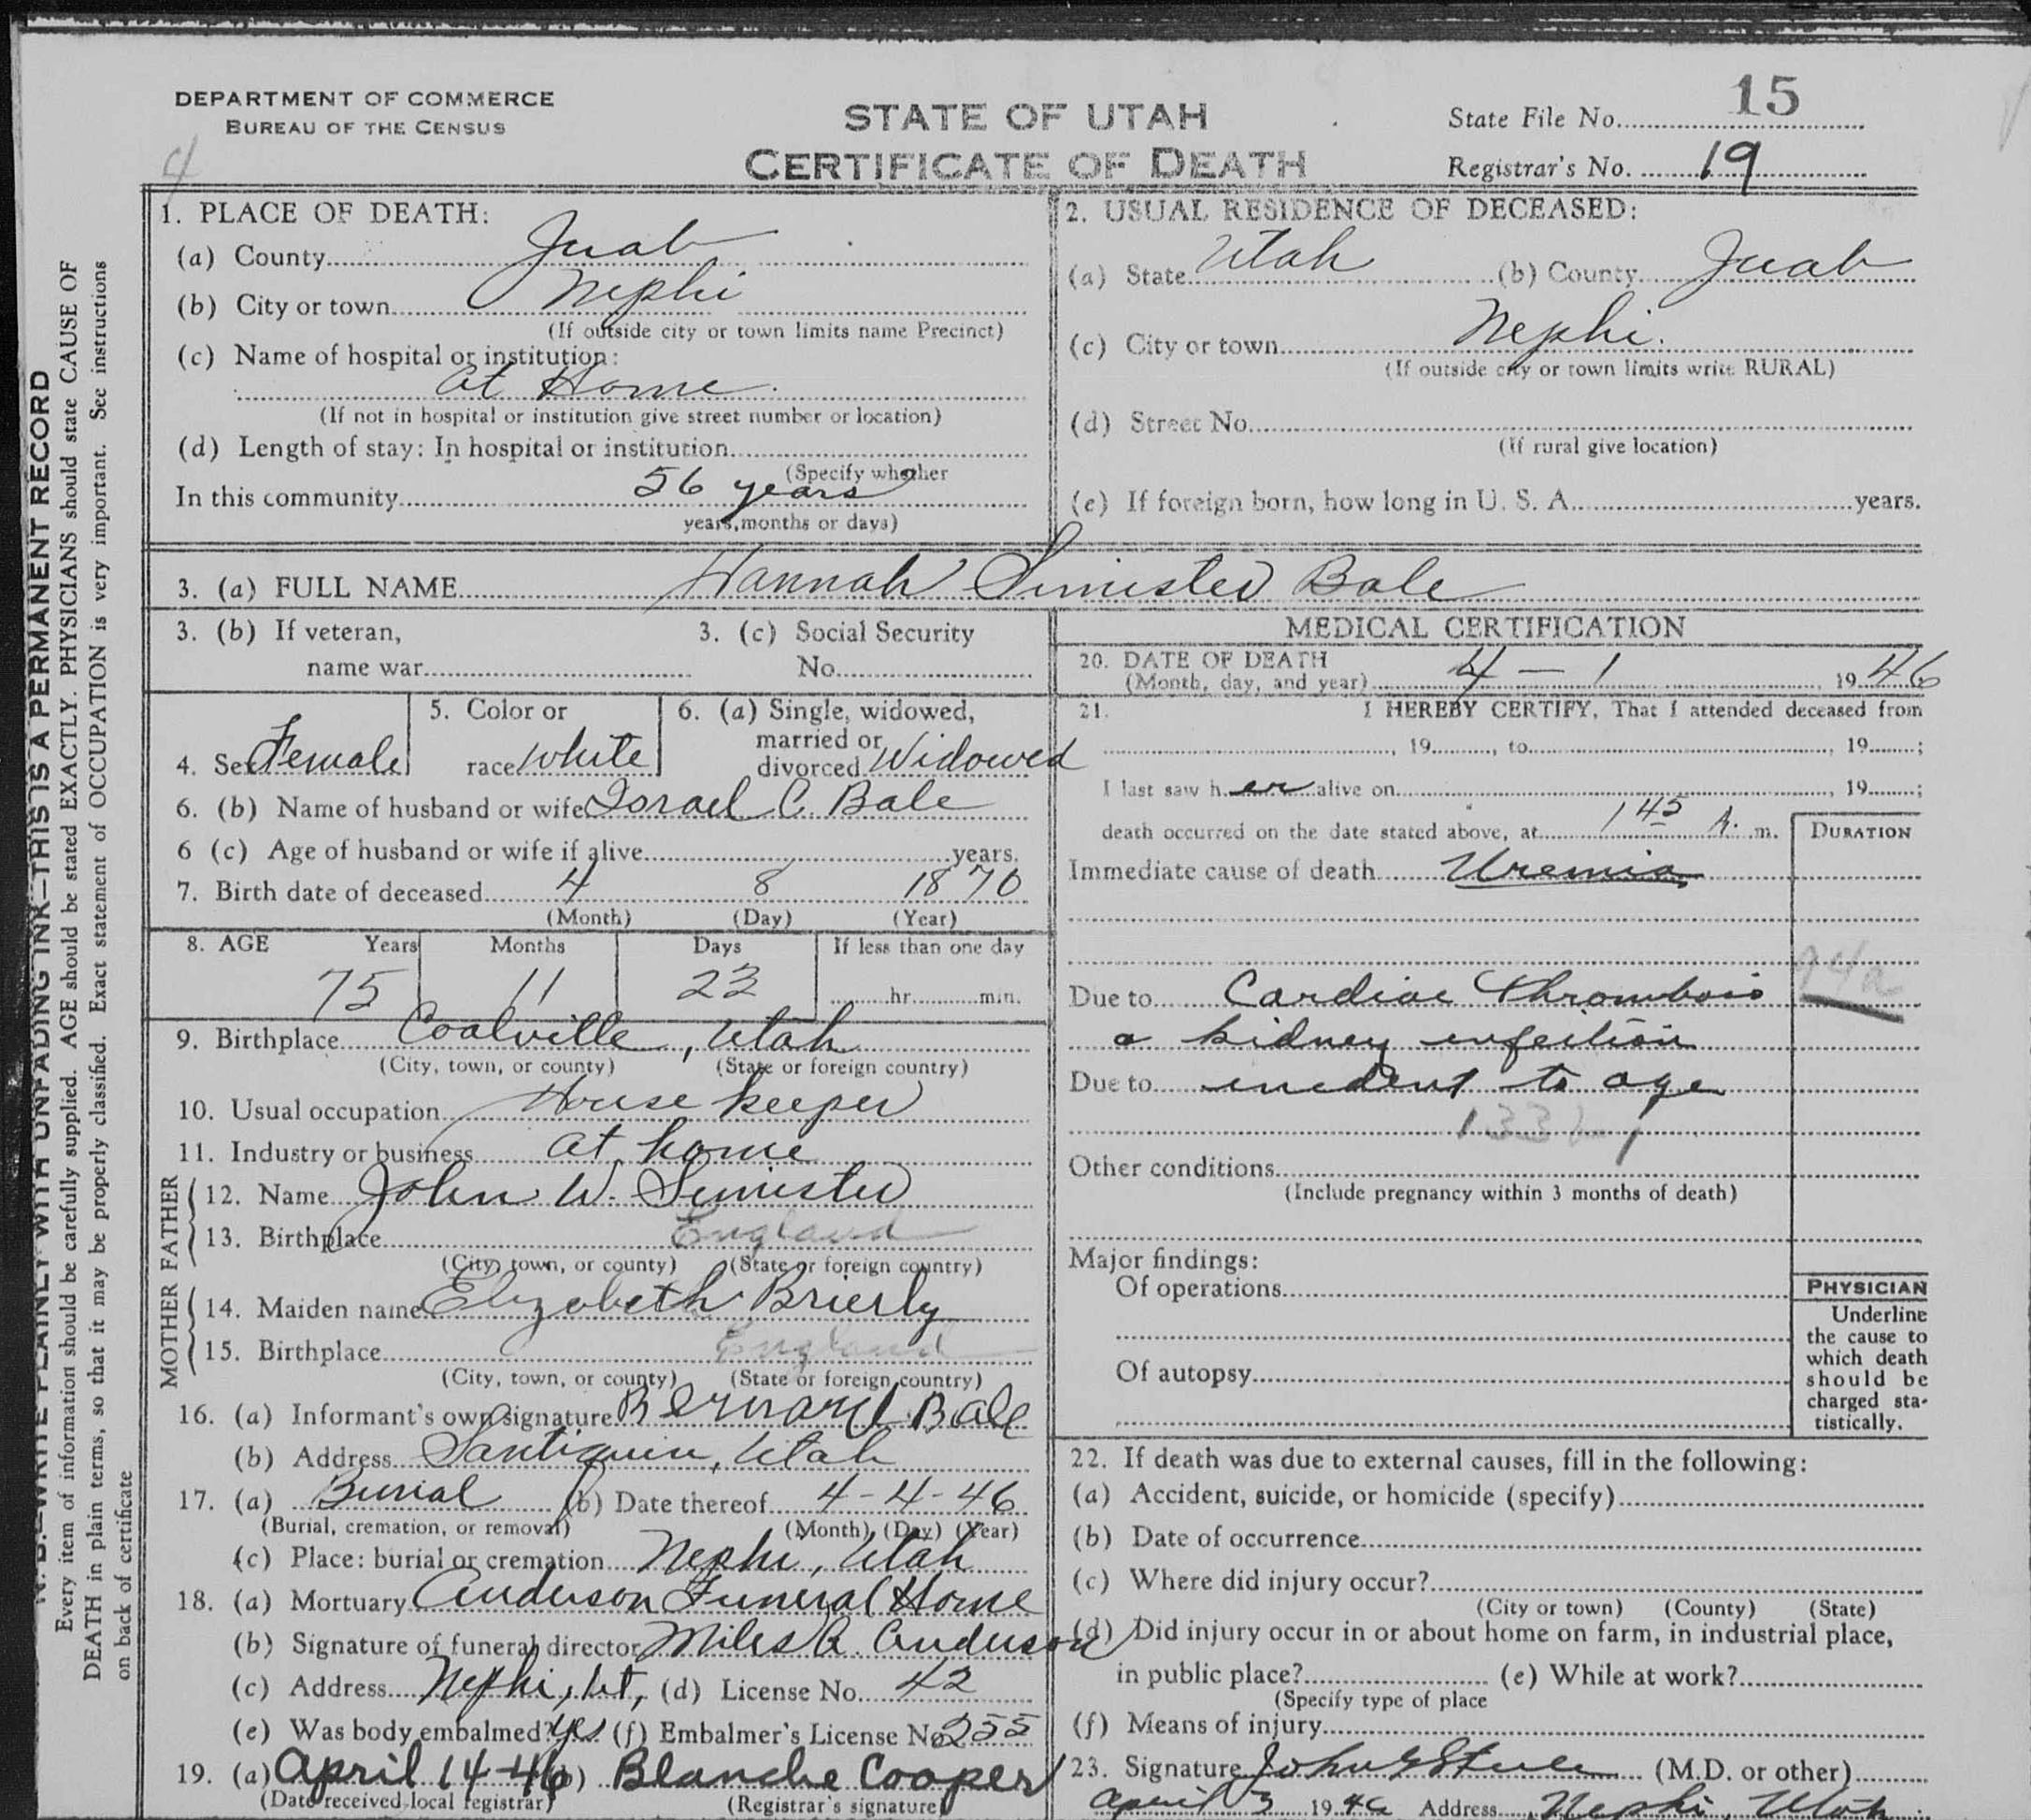 DEPARTMENT OF COMMERCE
BUREAU OF THE CENSUS
4
STATE OF UTAH
CERTIFICATE OF DEATH
State File No. 15
Registrar's No. 19
N. B.—WRITE PLAINLY WITH UNFADING INK—THIS IS A PERMANENT RECORD
Every item of information should be carefully supplied. AGE should be stated EXACTLY. PHYSICIANS should state CAUSE OF
DEATH in plain terms, so that it may be properly classified. Exact statement of OCCUPATION is very important. See instructions
on back of certificate
1. PLACE OF DEATH:
(a) County Juab
(b) City or town Nephi
(If outside city or town limits name Precinct)
(c) Name of hospital or institution:
at Home.
(If not in hospital or institution give street number or location)
(d) Length of stay: In hospital or institution
(Specify whether
In this community 56 years
years, months or days)
2. USUAL RESIDENCE OF DECEASED:
(a) State Utah (b) County Juab
(c) City or town Nephi.
(If outside city or town limits write RURAL)
(d) Street No.
(If rural give location)
(e) If foreign born, how long in U. S. A. years.
3. (a) FULL NAME Hannah Simister Bale
3. (b) If veteran,
name war
3. (c) Social Security
No.
4. Sex Female
5. Color or
race white
6. (a) Single, widowed,
married or
divorced Widowed
6. (b) Name of husband or wife Israel C. Bale
6 (c) Age of husband or wife if alive years.
7. Birth date of deceased 4 8 1870
(Month) (Day) (Year)
8. AGE Years Months Days If less than one day
75 11 23 hr. min.
9. Birthplace Coalville, Utah
(City, town, or county) (State or foreign country)
10. Usual occupation House keeper
11. Industry or business at home
FATHER
12. Name John W. Simister
13. Birthplace England
(City, town, or county) (State or foreign country)
MOTHER
14. Maiden name Elizabeth Brierly
15. Birthplace England
(City, town, or county) (State or foreign country)
16. (a) Informant's own signature Bernard Bale
(b) Address Santiquin, Utah
17. (a) Burial (b) Date thereof 4-4-46
(Burial, cremation, or removal) (Month) (Day) (Year)
(c) Place: burial or cremation Nephi, Utah
18. (a) Mortuary Anderson Funeral Home
(b) Signature of funeral director Miles A. Anderson
(c) Address Nephi, Ut, (d) License No. 42
(e) Was body embalmed? yes (f) Embalmer's License No. 255
19. (a) April 14-46 (b) Blanche Cooper
(Date received local registrar) (Registrar's signature)
MEDICAL CERTIFICATION
20. DATE OF DEATH
(Month, day, and year) 4 — 1 1946
21. I HEREBY CERTIFY, That I attended deceased from
, 19 , to , 19 ;
I last saw her alive on , 19 ;
death occurred on the date stated above, at 1 45 A. m.
DURATION
Immediate cause of death Uremia
Due to Cardiac Thrombois
94a
a kidney infection
Due to incident to age
Other conditions
(Include pregnancy within 3 months of death)
Major findings:
Of operations
Of autopsy
PHYSICIAN
Underline
the cause to
which death
should be
charged sta-
tistically.
22. If death was due to external causes, fill in the following:
(a) Accident, suicide, or homicide (specify)
(b) Date of occurrence
(c) Where did injury occur?
(City or town) (County) (State)
(d) Did injury occur in or about home on farm, in industrial place,
in public place? (e) While at work?
(Specify type of place
(f) Means of injury
23. Signature John (M.D. or other)
April 3 1946 Address Nephi, Utah